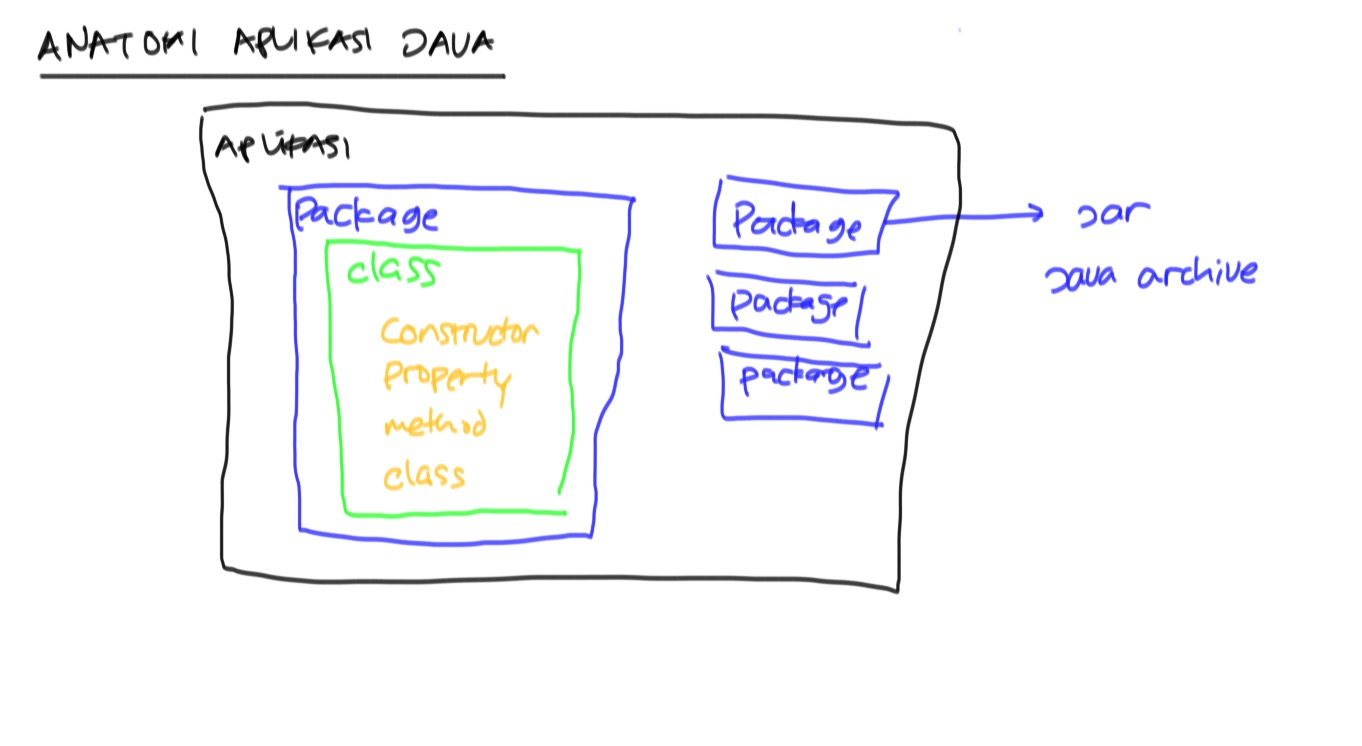 ANATOMI APLIKASI JAVA
APLIKASI
Package
class
Constructor
Property
method
class
Package
package
package
Jar
Java archive